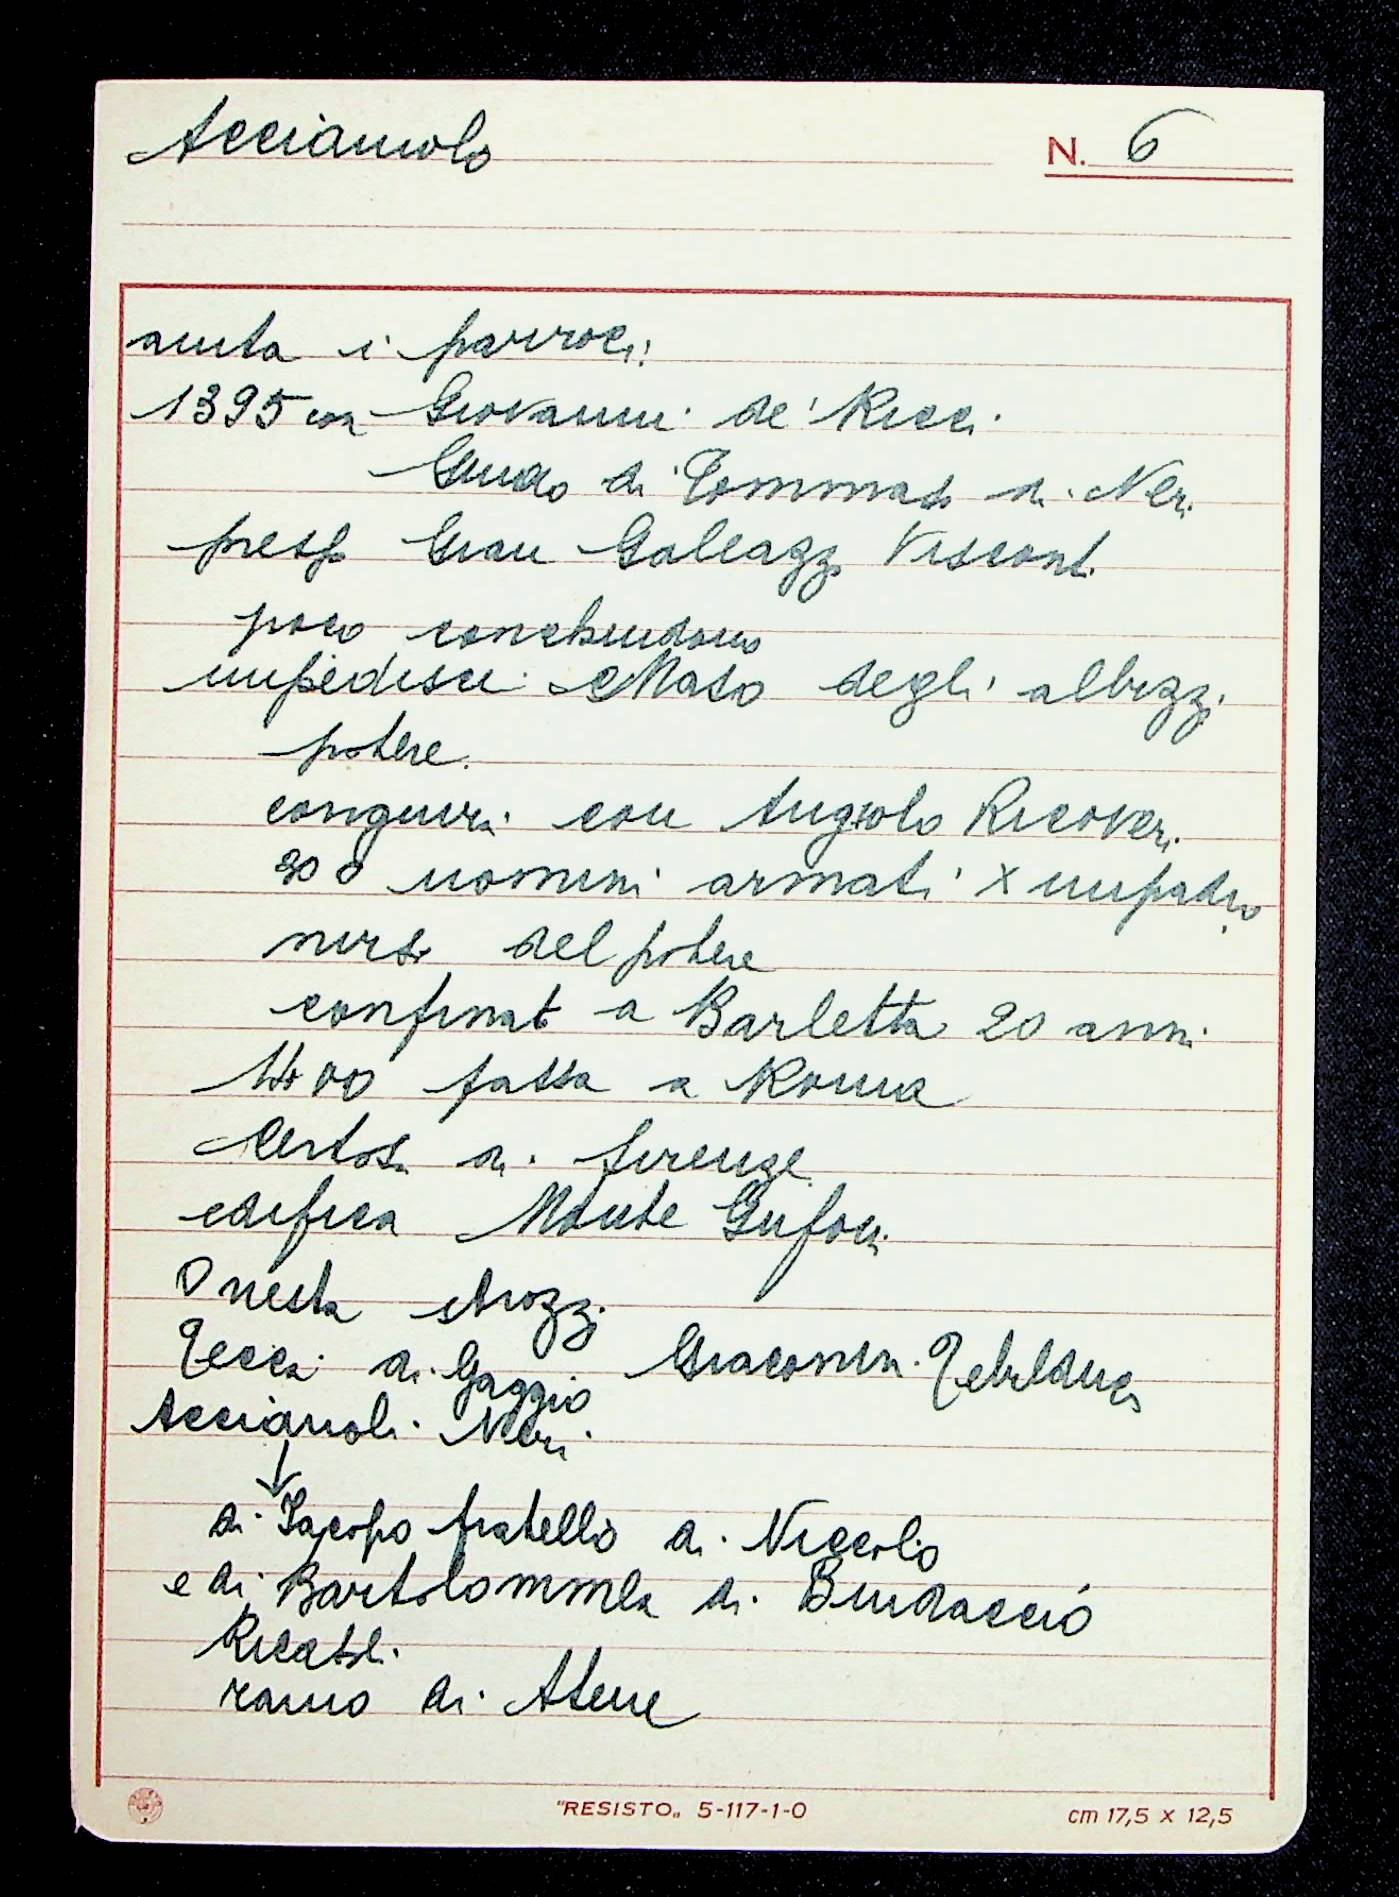 Acciaiuolo
N. 6
aiuta i parroci:
1395 con Giovanni de' Ricci
Guido di Tommaso di Neri
presso Gian Galeazzo Visconti
poco conchiudono
impedisce Maso degli albizzi
potere.
congiura con Angiolo Ricoveri
200 uomini armati x impadro
nirsi del potere
confinato a Barletta 20 anni
1400 fatta a Roma
Certosa di firenze
edifica Monte Gufoni
Onesta strozzi
Tecca di Gaggio Giacomina Tebalducci
Acciaiuoli Neri
↓
di Iacopo fratello di Niccolo
e di Bartolommea di Bindaccio
Ricasoli
ramo di Atene
"RESISTO„ 5-117-1-0
cm 17,5 x 12,5